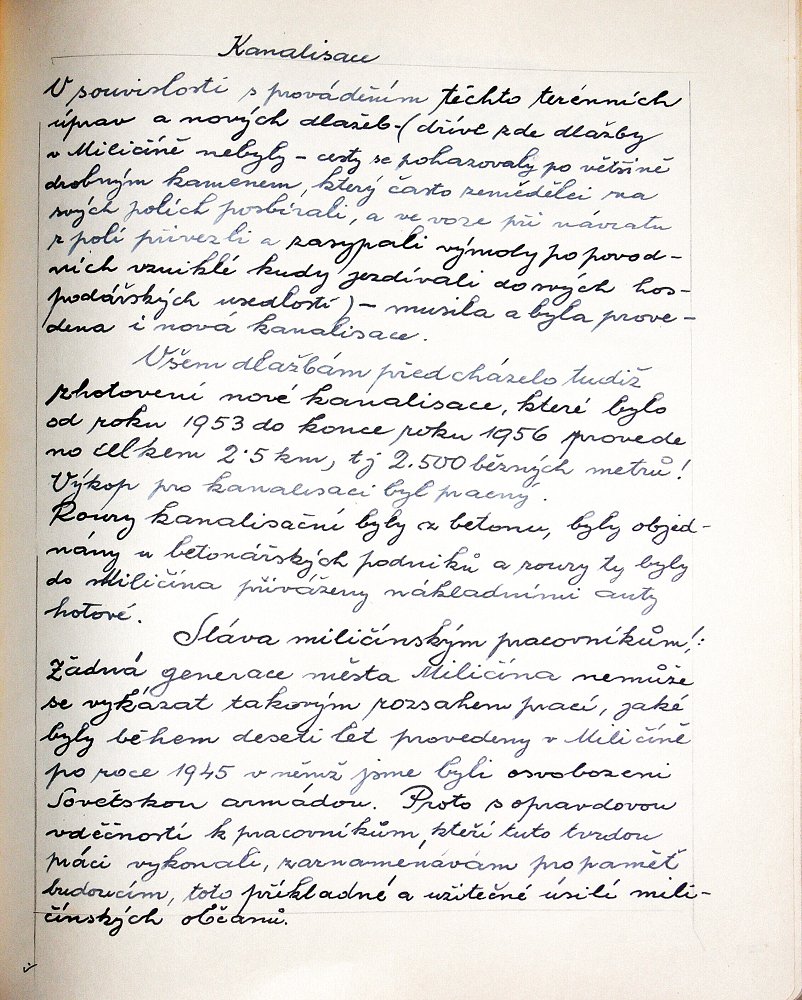 Kanalisace
V souvislosti s prováděním těchto terénních
úprav a nových dlažeb - (dříve zde dlažby
v Miličíně nebyly - cesty se pohazovaly po většině
drobným kamenem, který často zemědělci na
svých polích posbírali, a ve voze při návratu
z polí přivezli a zasypali výmoly po povod-
ních vzniklé kudy jezdívali do svých hos-
podářských usedlostí) - musila a byla prove-
dena i nová kanalisace.
Všem dlažbám předcházelo tudíž
zhotovení nové kanalisace, které bylo
od roku 1953 do konce roku 1956 provede
no celkem 2·5 km, tj 2.500 běžných metrů!
Výkop pro kanalisaci byl pracný.
Roury kanalisační byly z betonu, byly objed-
nány u betonářských podniků a roury ty byly
do Miličína přiváženy nákladními auty
hotové.
Sláva miličínským pracovníkům!:
Žádná generace města Miličína nemůže
se vykázat takovým rozsahem prací, jaké
byly během deseti let provedeny v Miličíně
po roce 1945 v němž jsme byli osvobozeni
Sovětskou armádou. Proto s opravdovou
vděčností k pracovníkům, kteří tuto tvrdou
práci vykonali, zaznamenávám pro paměť
budoucím, toto příkladné a užitečné úsilí mili-
čínských občanů.